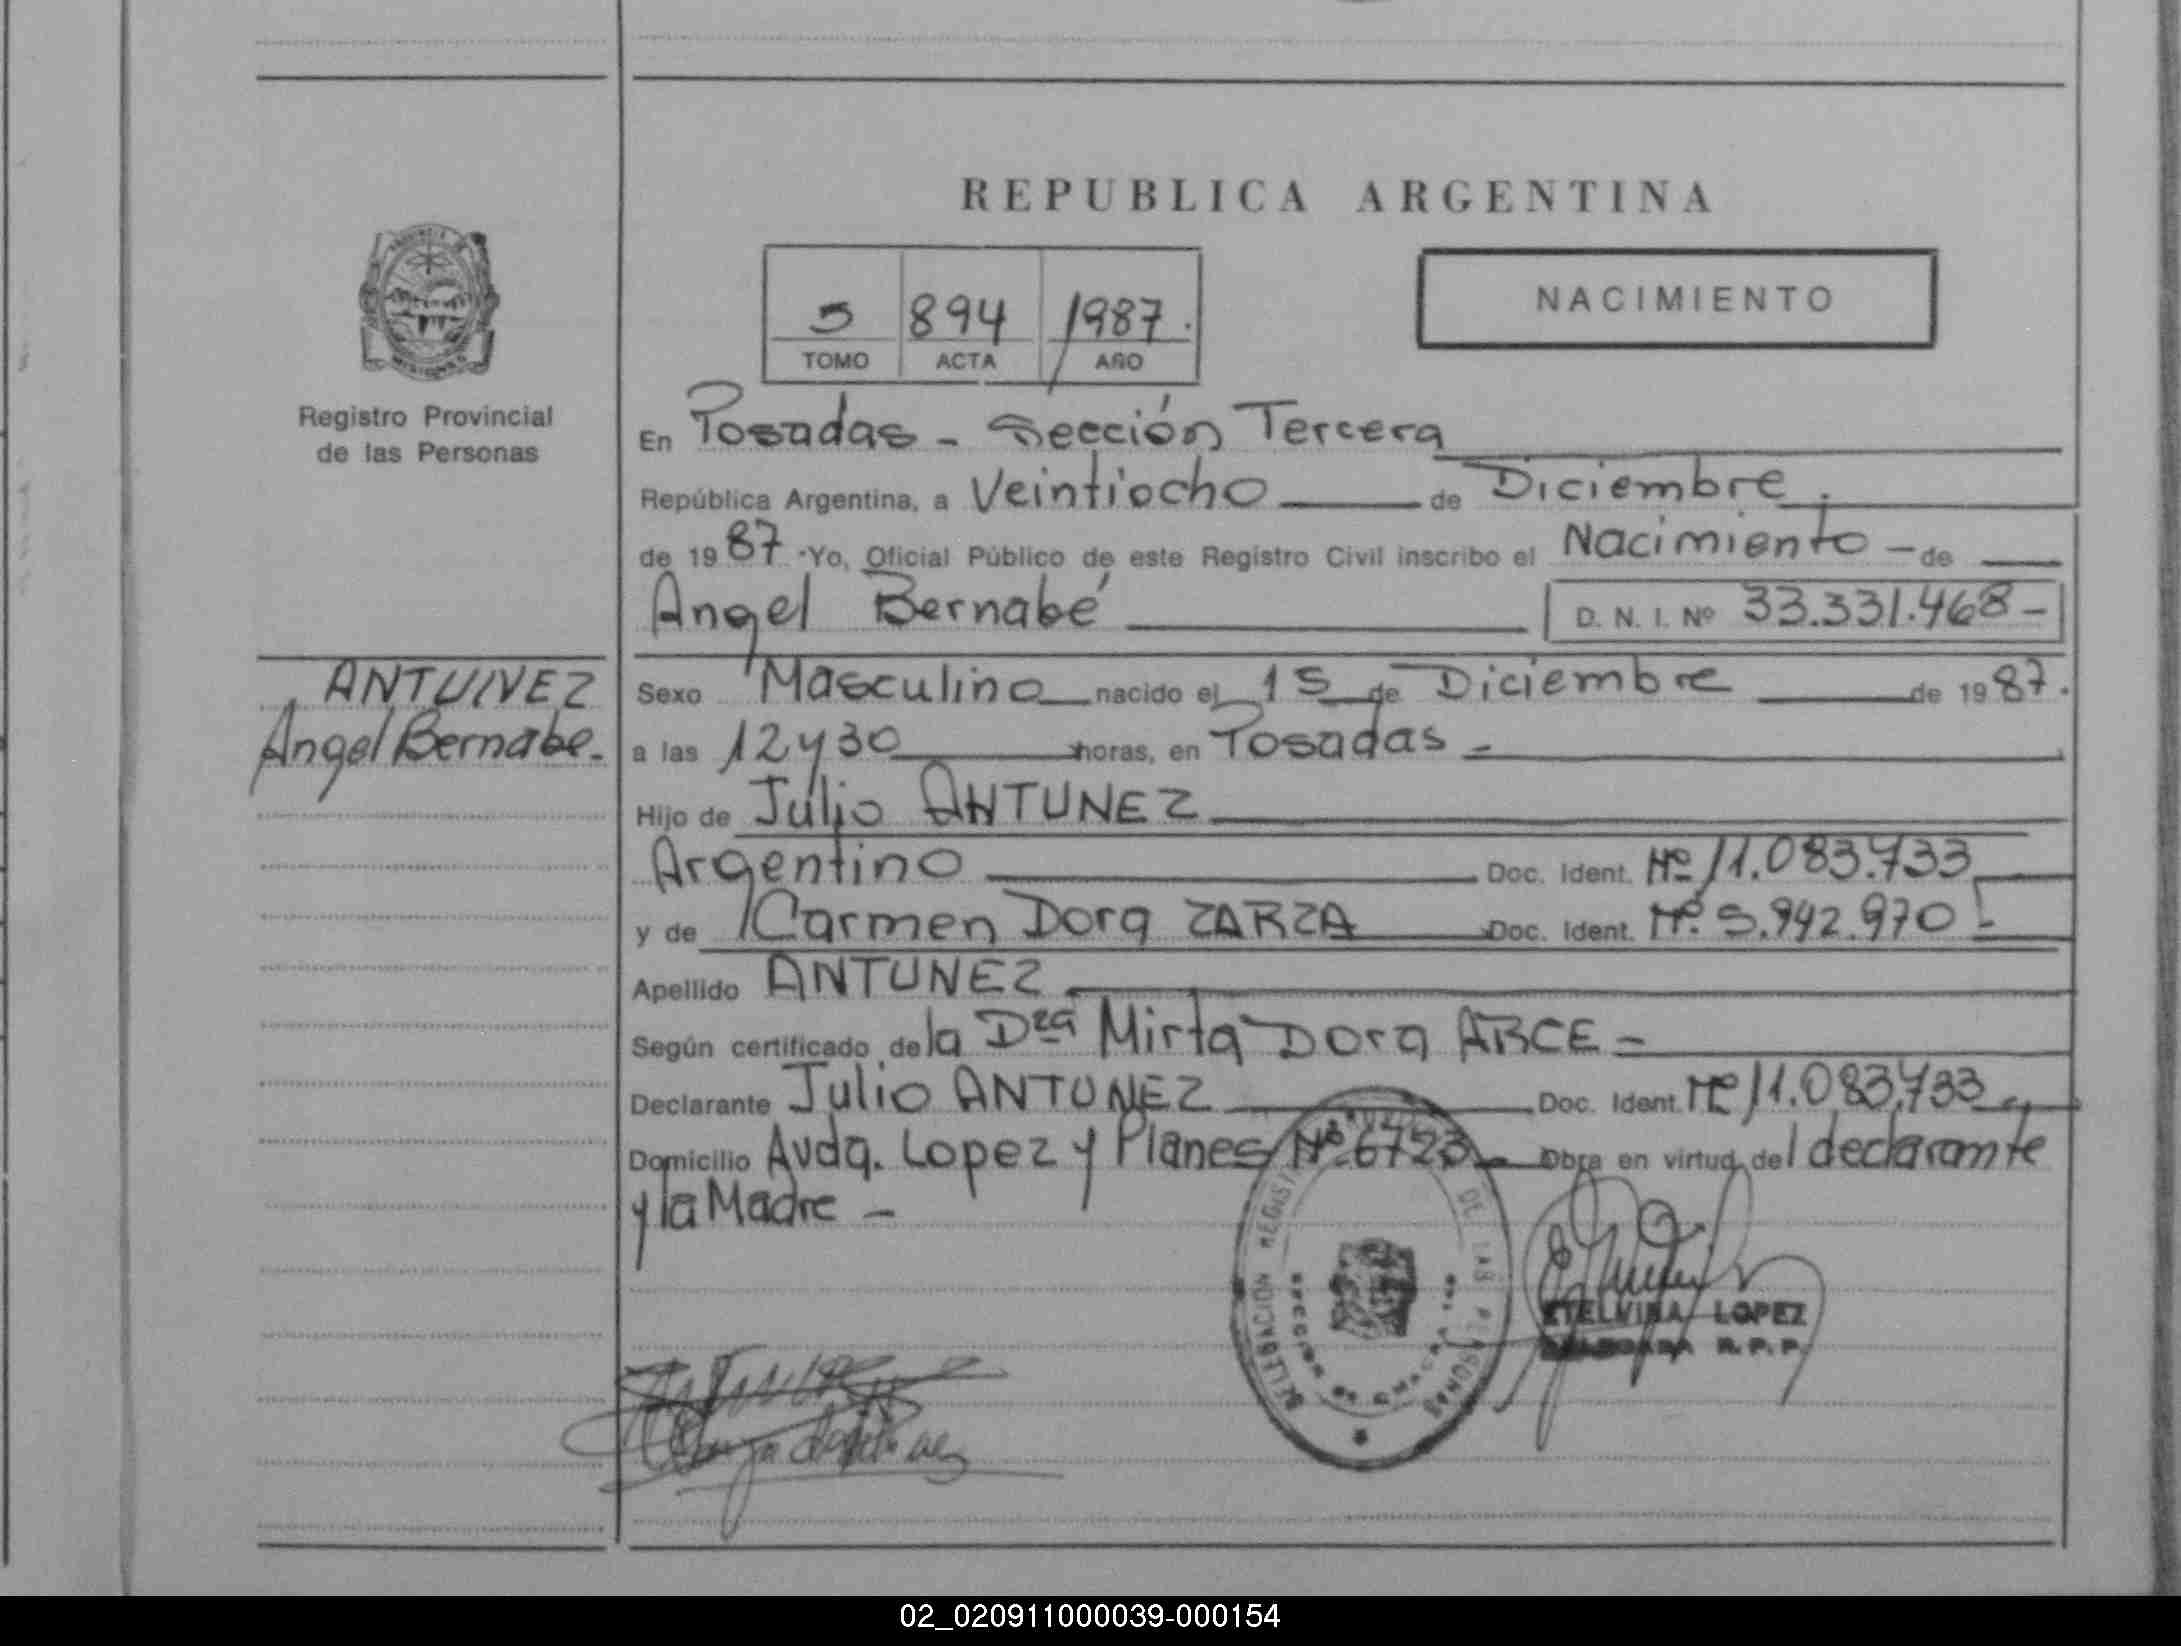 REPUBLICA ARGENTINA
NACIMIENTO
5 894 1987.
TOMO ACTA AÑO
Registro Provincial
de las Personas
En Posadas - Sección Tercera
República Argentina, a Veintiocho de Diciembre.
de 1987 Yo, Oficial Público de este Registro Civil inscribo el Nacimiento - de
Angel Bernabé D. N. I. Nº 33.331.468 -
ANTUNEZ
Angel Bernabe.
Sexo Masculino nacido el 15 de Diciembre de 1987.
a las 12 y 30 horas, en Posadas -
Hijo de Julio ANTUNEZ
Argentino Doc. Ident. Nº 11.083.733
y de Carmen Dora ZARZA Doc. Ident. Nº 5.942.970 -
Apellido ANTUNEZ
Según certificado de la Dra Mirta Dora ARCE -
Declarante Julio ANTUNEZ Doc. Ident. Nº 11.083.733
Domicilio Avda. Lopez y Planes Nº 6723 - Obra en virtud del declarante
y la Madre -
DELEGACION REGISTRO DE LAS PERSONAS
ETELVINA LOPEZ
R.P.P.
02_020911000039-000154